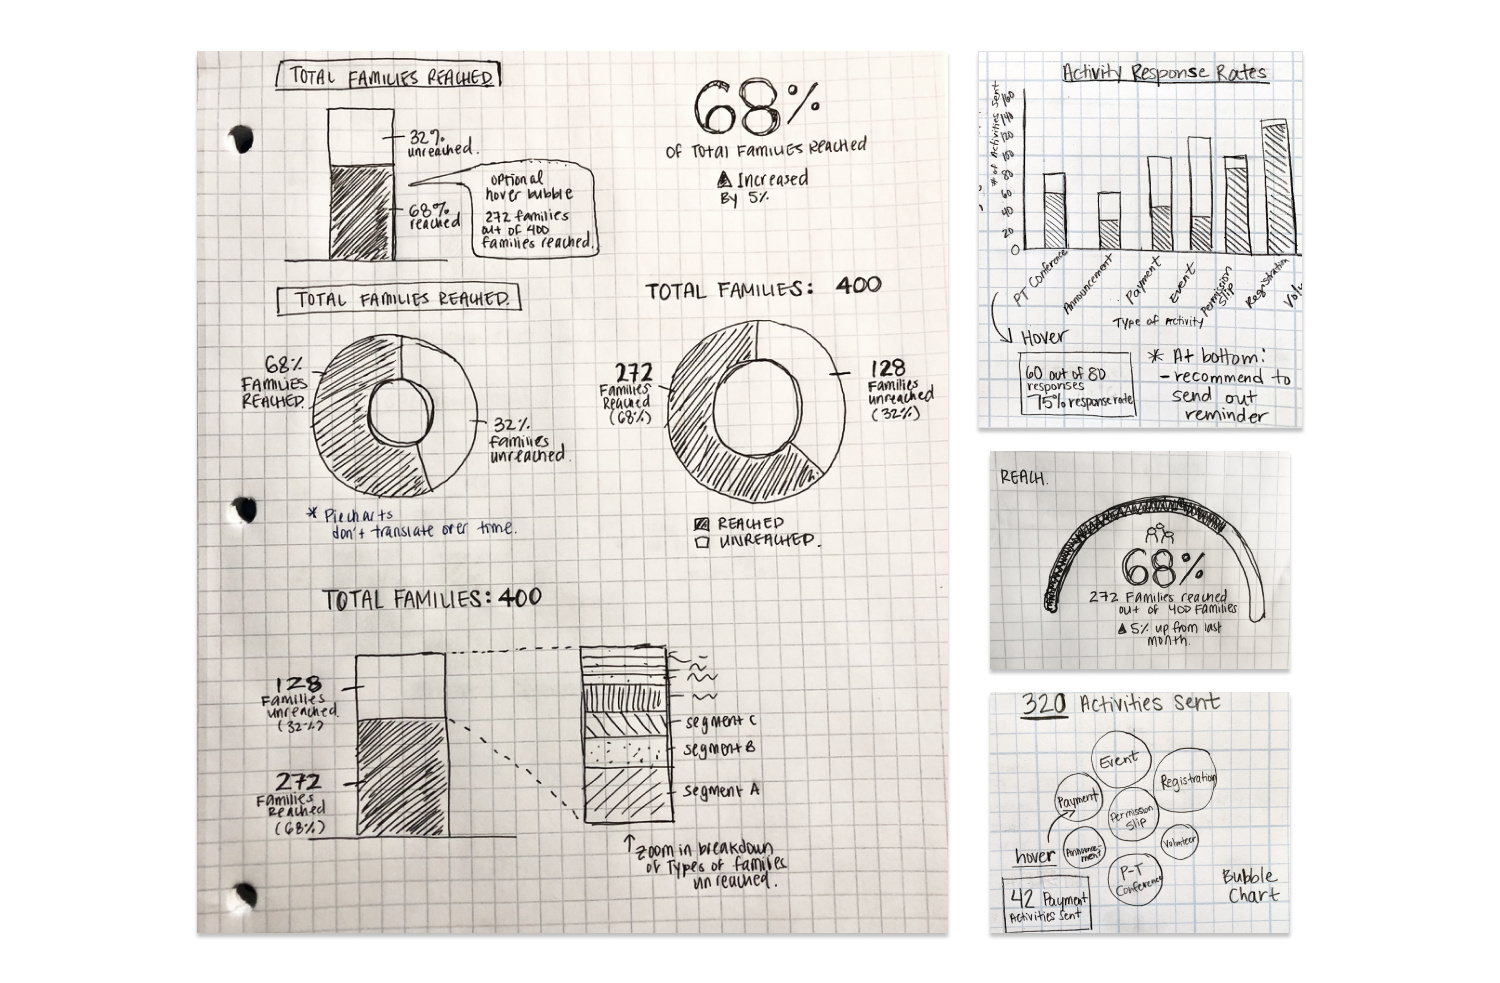 TOTAL FAMILIES REACHED
32%
unreached.
68%
reached
optional
hover bubble
272 families
out of 400
families reached.
68%
OF TOTAL FAMILIES REACHED
▲ Increased
By 5%
TOTAL FAMILIES REACHED.
68%
FAMILIES
REACHED.
32%
families
unreached.
* Piecharts
don't translate over time.
TOTAL FAMILIES: 400
272
Families
Reached
(68%)
128
Families
unreached
(32%)
REACHED
UNREACHED.
TOTAL FAMILIES: 400
128
Families
unreached.
(32%)
272
Families
Reached
(68%)
segment C
segment B
segment A
↑ Zoom in breakdown
of Types of families
unreached.
Activity Response Rates
# of Activities Sent
160
140
120
100
80
60
40
20
0
PT Conference
Announcement
Payment
Event
Permission
Slip
Registration
Volu
Type of Activity
Hover
60 out of 80
responses
75% response rate
* At bottom:
- recommend to
send out
reminder
REACH.
68%
272 Families reached
out of 400 Families
▲ 5% up from last
month.
320 Activities Sent
Event
Registration
Payment
Permission
Slip
Volunteer
Announce-
ment
P-T
Conference
hover
42 Payment
Activities Sent
Bubble
Chart